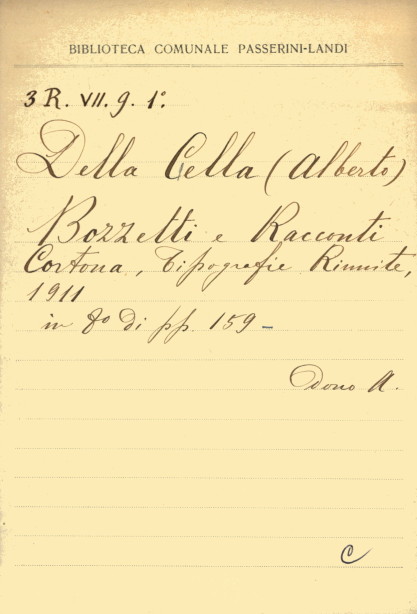 BIBLIOTECA COMUNALE PASSERINI-LANDI
3 R. VII. 9. 1º.
Della Cella (Alberto)
Bozzetti e Racconti
Cortona, Tipografie Riunite,
1911
in 8º di pp. 159 –
Dono A.
C